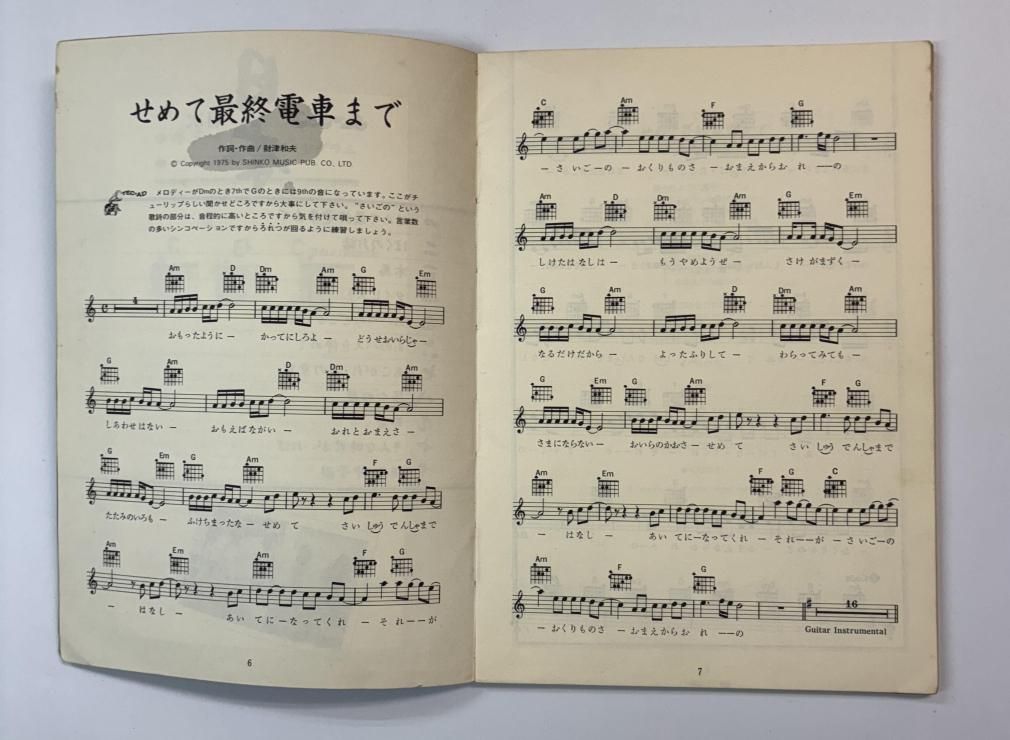 せめて最終電車まで
作詞・作曲／財津和夫
© Copyright 1975 by SHINKO MUSIC PUB. CO., LTD.
メロディーがDmのとき7thでGのときには9thの音になっています。ここがチ
ューリップらしい聞かせどころですから大事にして下さい。“さいごの”という
歌詩の部分は、音程的に高いところですから気を付けて唄って下さい。言葉数
の多いシンコペーションですからろれつが回るように練習しましょう。
Am D Dm Am G Em
4
おもったように ー かってにしろよ ー どうせおいらじゃー
G Am D Dm Am
しあわせはない ー おもえばながい ー おれとおまえさ ー
G Em G Am F G
たたみのいろも ー ふけちまったな ー せめ て さい しゅう でんしゃまで
Am Em Am F G
ー はなし ー あい てにーなってくれ ー それーーが
6
C Am F G
ー さ いごーの ー おくりものさ ー おまえからお れ ーーの
Am G D Dm Am G Am
しけたはなしは ー もうやめようぜ ー さけ がまずく ー
G Am D Dm Am
なるだけだから ー よったふりして ー わらってみても ー
G Em G Am F G
さまにならない ー おいらのかおさ ー せめ て さい しゅう でんしゃまで
Am Em F G C
ー はなし ー あい てにーなってくれ ー それーーが ー さいごーの
Am F G
16
ー おくりものさ ー おまえからお れ ーーの Guitar Instrumental
7